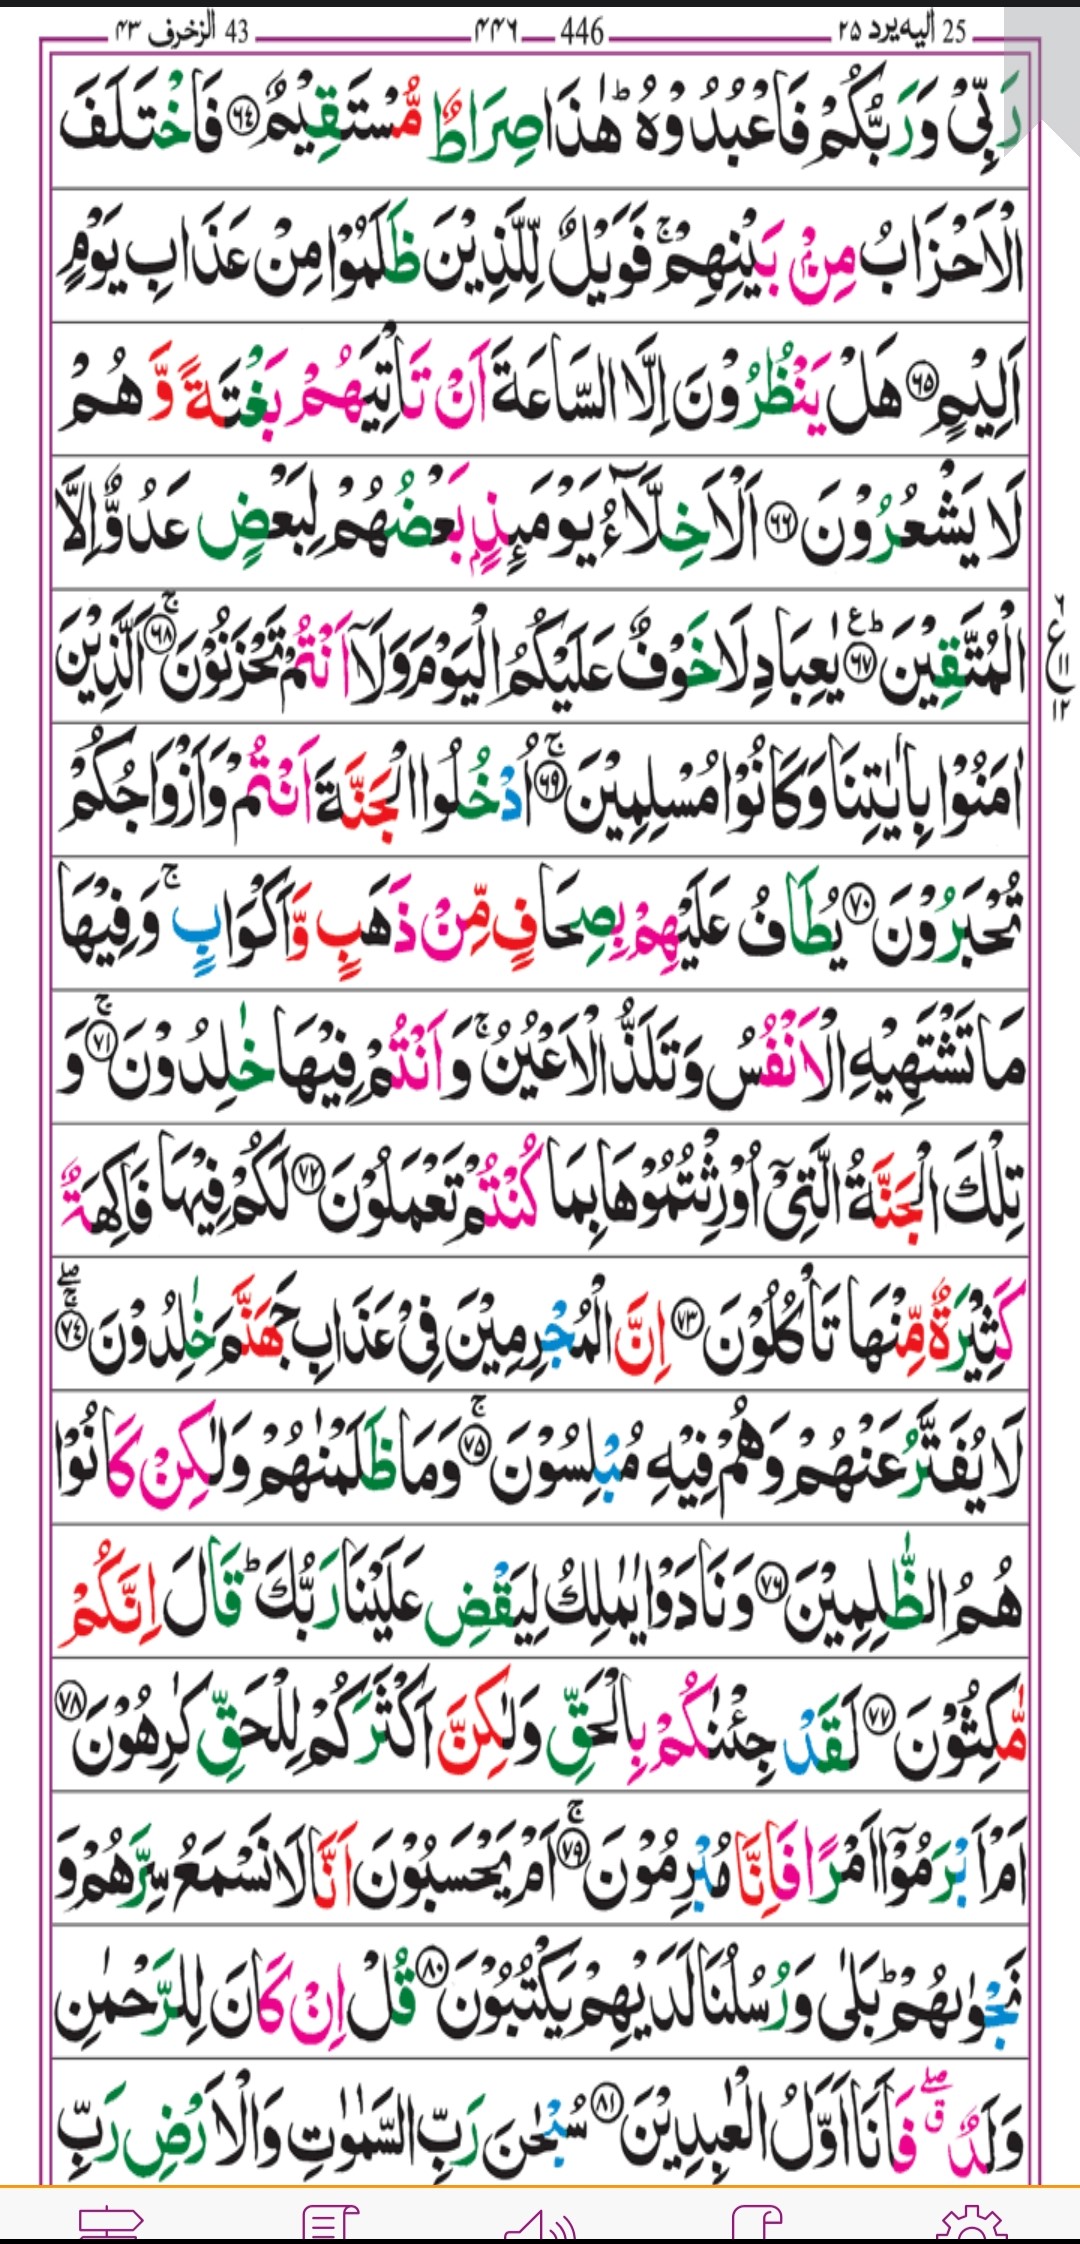 25 الیه یرد ۲۵ 446 ۴۴۶ 43 الزخرف ۴۳
رَبِّیْ وَرَبُّكُمْ فَاعْبُدُوْهُ ؕ هٰذَا صِرَاطٌ مُّسْتَقِیْمٌ ﴿۶۴﴾ فَاخْتَلَفَ
الْاَحْزَابُ مِنْۢ بَیْنِهِمْ ۚ فَوَیْلٌ لِّلَّذِیْنَ ظَلَمُوْا مِنْ عَذَابِ یَوْمٍ
اَلِیْمٍ ﴿۶۵﴾ هَلْ یَنْظُرُوْنَ اِلَّا السَّاعَةَ اَنْ تَاْتِیَهُمْ بَغْتَةً وَّ هُمْ
لَا یَشْعُرُوْنَ ﴿۶۶﴾ اَلْاَخِلَّآءُ یَوْمَىِٕذٍۭ بَعْضُهُمْ لِبَعْضٍ عَدُوٌّ اِلَّا
الْمُتَّقِیْنَ ؕ ﴿۶۷﴾ یٰعِبَادِ لَا خَوْفٌ عَلَیْكُمُ الْیَوْمَ وَلَاۤ اَنْتُمْ تَحْزَنُوْنَ ۚ ﴿۶۸﴾ اَلَّذِیْنَ
اٰمَنُوْا بِاٰیٰتِنَا وَكَانُوْا مُسْلِمِیْنَ ۚ ﴿۶۹﴾ اُدْخُلُوا الْجَنَّةَ اَنْتُمْ وَاَزْوَاجُكُمْ
تُحْبَرُوْنَ ﴿۷۰﴾ یُطَافُ عَلَیْهِمْ بِصِحَافٍ مِّنْ ذَهَبٍ وَّاَكْوَابٍ ۚ وَفِیْهَا
مَا تَشْتَهِیْهِ الْاَنْفُسُ وَتَلَذُّ الْاَعْیُنُ ۚ وَاَنْتُمْ فِیْهَا خٰلِدُوْنَ ۚ ﴿۷۱﴾ وَ
تِلْكَ الْجَنَّةُ الَّتِیْۤ اُوْرِثْتُمُوْهَا بِمَا كُنْتُمْ تَعْمَلُوْنَ ﴿۷۲﴾ لَكُمْ فِیْهَا فَاكِهَةٌ
كَثِیْرَةٌ مِّنْهَا تَاْكُلُوْنَ ﴿۷۳﴾ اِنَّ الْمُجْرِمِیْنَ فِیْ عَذَابِ جَهَنَّمَ خٰلِدُوْنَ ۚۖ ﴿۷۴﴾
لَا یُفَتَّرُ عَنْهُمْ وَهُمْ فِیْهِ مُبْلِسُوْنَ ۚ ﴿۷۵﴾ وَمَا ظَلَمْنٰهُمْ وَلٰكِنْ كَانُوْا
هُمُ الظّٰلِمِیْنَ ﴿۷۶﴾ وَنَادَوْا یٰمٰلِكُ لِیَقْضِ عَلَیْنَا رَبُّكَ ؕ قَالَ اِنَّكُمْ
مّٰكِثُوْنَ ﴿۷۷﴾ لَقَدْ جِئْنٰكُمْ بِالْحَقِّ وَلٰكِنَّ اَكْثَرَكُمْ لِلْحَقِّ كٰرِهُوْنَ ﴿۷۸﴾
اَمْ اَبْرَمُوْۤا اَمْرًا فَاِنَّا مُبْرِمُوْنَ ۚ ﴿۷۹﴾ اَمْ یَحْسَبُوْنَ اَنَّا لَا نَسْمَعُ سِرَّهُمْ وَ
نَجْوٰىهُمْ ؕ بَلٰی وَرُسُلُنَا لَدَیْهِمْ یَكْتُبُوْنَ ﴿۸۰﴾ قُلْ اِنْ كَانَ لِلرَّحْمٰنِ
وَلَدٌ ۖۗ فَاَنَا اَوَّلُ الْعٰبِدِیْنَ ﴿۸۱﴾ سُبْحٰنَ رَبِّ السَّمٰوٰتِ وَالْاَرْضِ رَبِّ
۶
ع
۱۱
۱۲